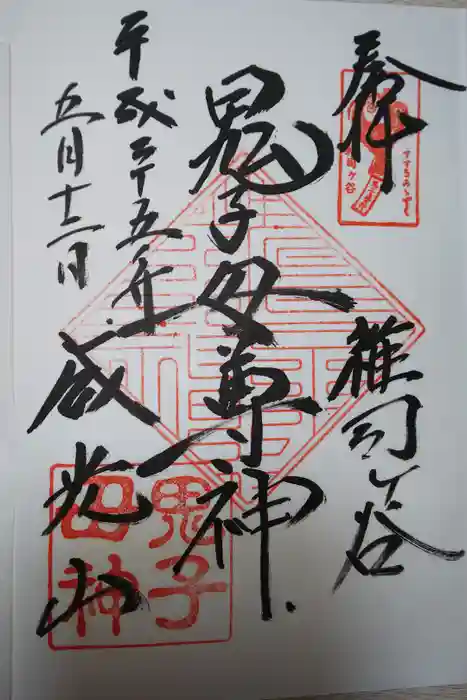 奉拝
雑司ヶ谷
鬼子母尊神
威光山
平成二十五年
五月十二日
鬼子
母神
すすきみゝずく
ヶ谷